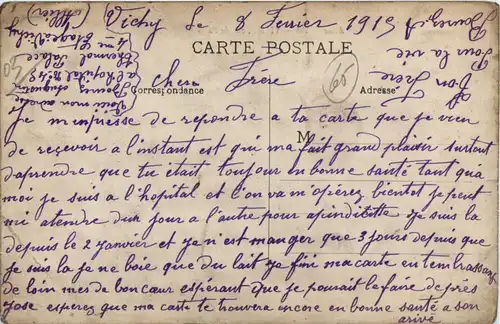 Vichy le 8 Fevrier 1915
CARTE POSTALE
Correspondance
Adresse
Chere Frere
M
60
Je m'empresse de repondre a ta carte que je vien
de reçevoir a l'instant est qui ma fait grand plaisir surtout
d'aprendre que tu était toujour en bonne santé tant qua
moi je suis a l'hopital et l'on va m'opérez bientot je peut
mi atendre dun jour a l'autre pour apindicitte je suis la
depuis le 2 janvier et je n'est manger que 3 jours depuis que
je suis la je ne boie que du lait je fini ma carte en t'embrassant
de loin mes de bon cœur espérant que je pourait le faire de près
jose esperez que ma carte te trouvera encore en bonne santé a son
arivé
Ton Frere
pour la vie
Voici mon adresse
a l'hopital No
Thermal Palace
4 me Etage
Vichy
(Allier)